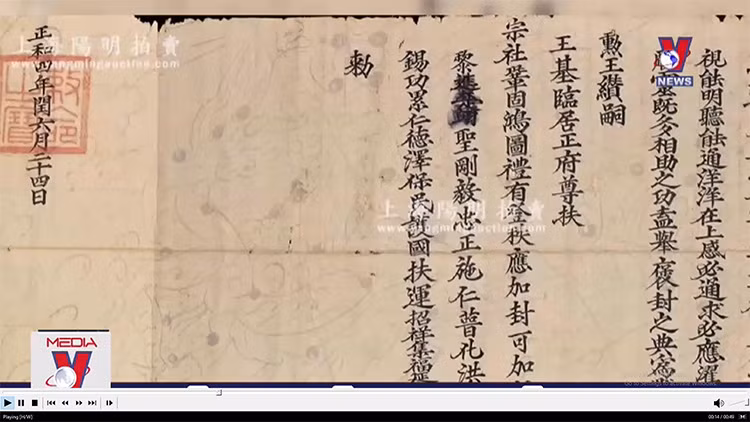 視能明聽能通洋洋在上感必通求必應濯
靈既多相助之功盍舉褒封之典
勲王纘嗣
王基臨居正府尊扶
宗社鞏固鴻圖禮有登秩應加封可加
黎
聖剛毅忠正施仁普化洪
錫功累仁德澤保民護國扶運招祥集福
敕
正和四年閏六月二十四日
敕命之寶
上海陽明拍賣
www.yangmingauction.com
上海陽明拍賣
www.yangmingauction.com
V
NEWS
MEDIA
V
Playing [H/W]
00:14 / 00:46